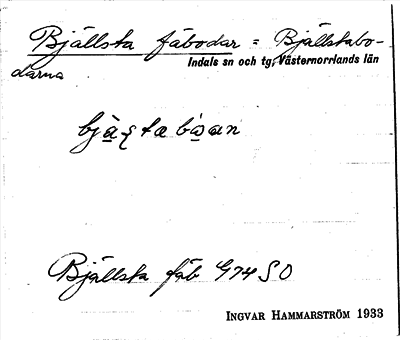 Bjällsta fäbodar = Bjällstabo-
darna
Indals sn och tg, Västernorrlands län
Bjällsta fäb G74 SO
INGVAR HAMMARSTRÖM 1933